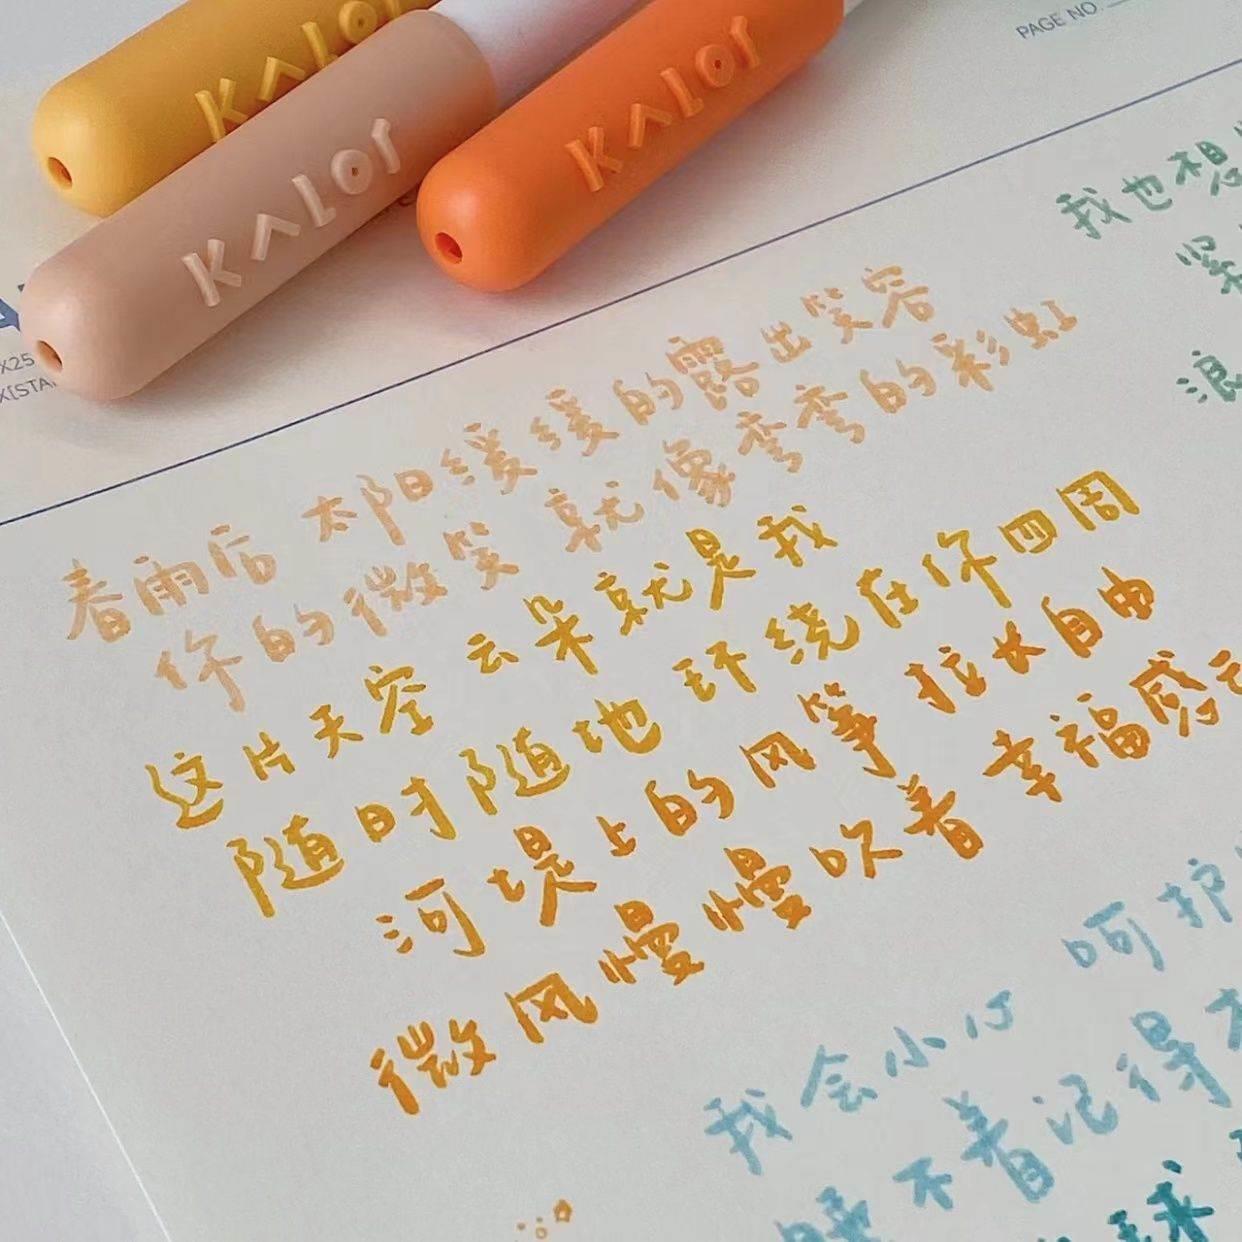 KALOr
KALOr
KALOr
PAGE NO
X25
春雨后 太阳缓缓的露出笑容
你的微笑 就像弯弯的彩虹
这片天空 云朵就是我
随时随地 环绕在你四周
河堤上的风筝 拉长自由
微风慢慢吹着 幸福感
我也想
紧
浪
我会小心 呵护
睡不着记得